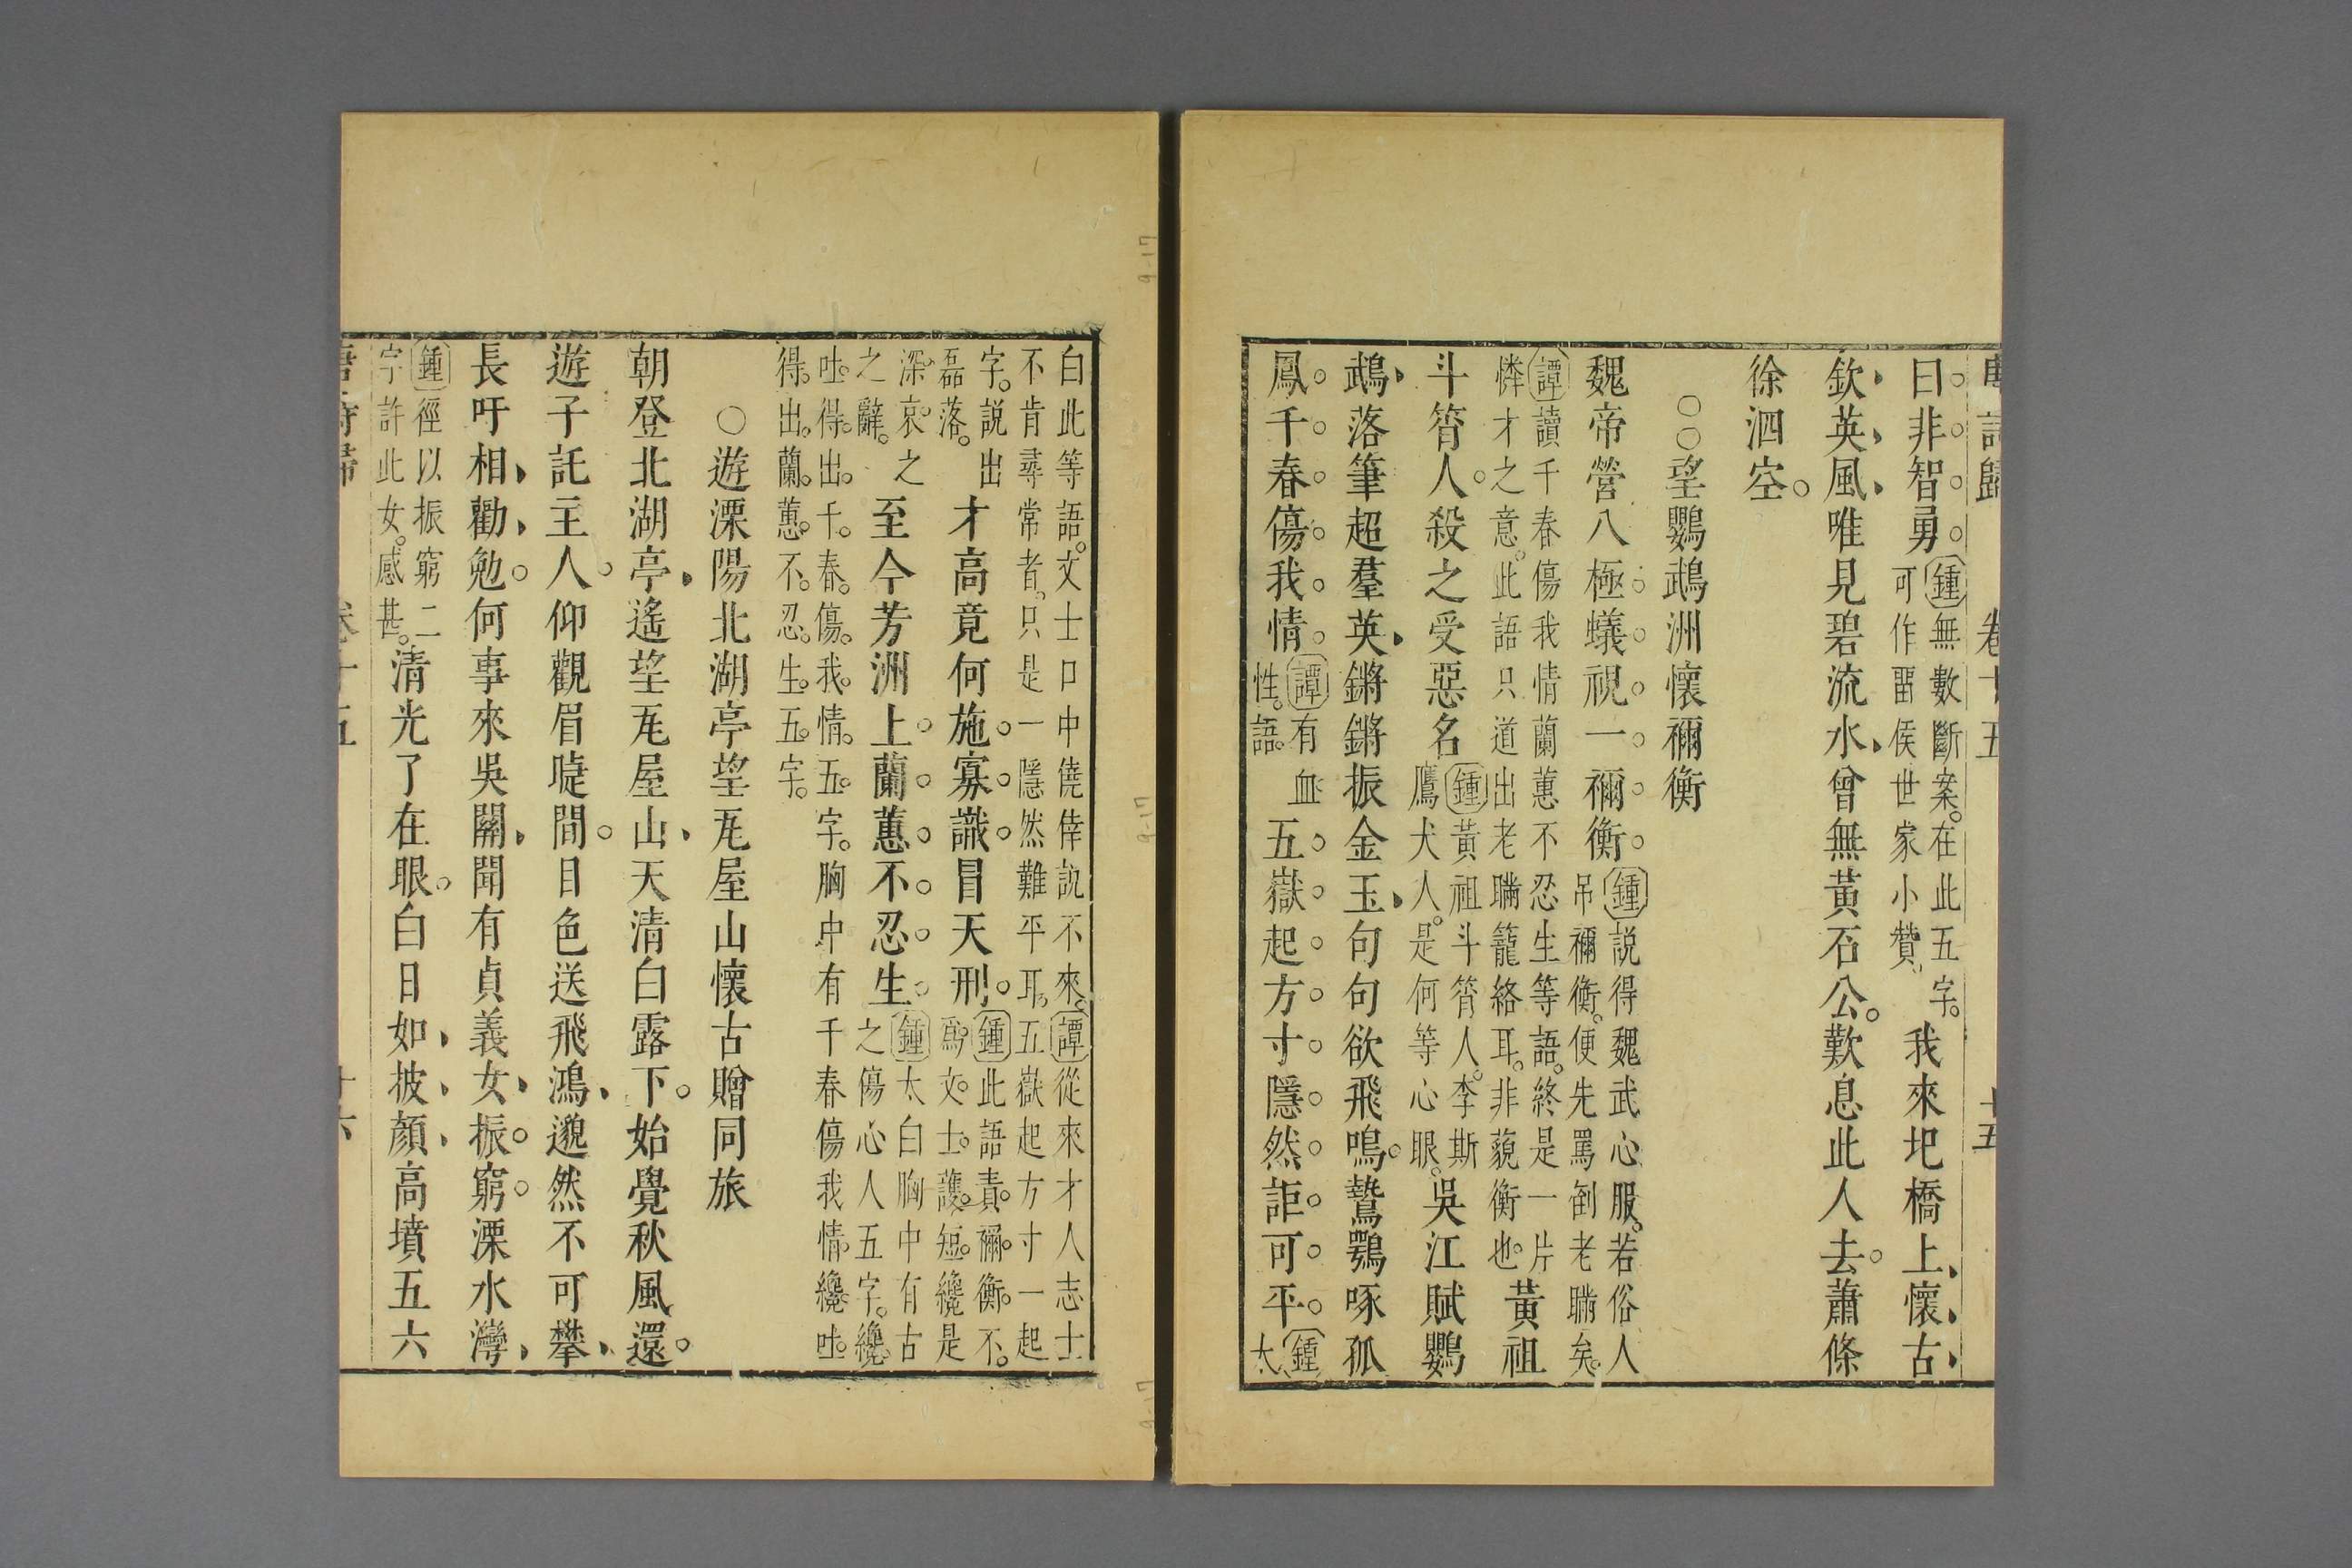 唐詩歸 卷十五 十五
曰非智勇鍾無數斷案在此五字可作畱侯世家小贊我來圯橋上懷古
欽英風唯見碧流水曾無黃石公歎息此人去蕭條
徐泗空
○○望鸚鵡洲懷禰衡
魏帝營八極蟻視一禰衡鍾說得魏武心服若俗人吊禰衡便先罵倒老瞞矣
譚讀千春傷我情蘭蕙不忍生等語終是一片憐才之意此語只道出老瞞籠絡耳非藐衡也黃祖
斗筲人殺之受惡名鍾黃祖斗筲人李斯鷹犬人是何等心眼吳江賦鸚
鵡落筆超羣英鏘鏘振金玉句句欲飛鳴鷙鶚啄孤
鳳千春傷我情譚有血性語五嶽起方寸隱然詎可平鍾太
白此等語文士口中僥倖說不來譚從來才人志士
不肯尋常者只是一隱然難平耳五嶽起方寸一起
字說出磊落才高竟何施寡識冒天刑鍾此語責禰衡不爲文士護短纔是
深哀之之辭至今芳洲上蘭蕙不忍生鍾太白胸中有古之傷心人五字纔
吐得出千春傷我情五字胸中有千春傷我情纔吐
得出蘭蕙不忍生五字
○遊溧陽北湖亭望瓦屋山懷古贈同旅
朝登北湖亭遙望瓦屋山天清白露下始覺秋風還
遊子託主人仰觀眉睫間目色送飛鴻邈然不可攀
長吁相勸勉何事來吳關聞有貞義女振窮溧水灣
鍾徑以振窮二字許此女感甚清光了在眼白日如披顏高墳五六
唐詩歸 卷十五 十六